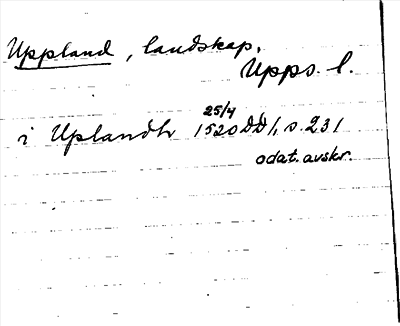 Uppland, landskap.
Upps. l.
i Uplandh 25/4 1520 DD 1, s. 231
odat. avskr.